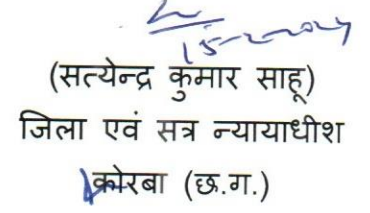 15-2-2024
(सत्येन्द्र कुमार साहू)
जिला एवं सत्र न्यायाधीश
कोरबा (छ.ग.)